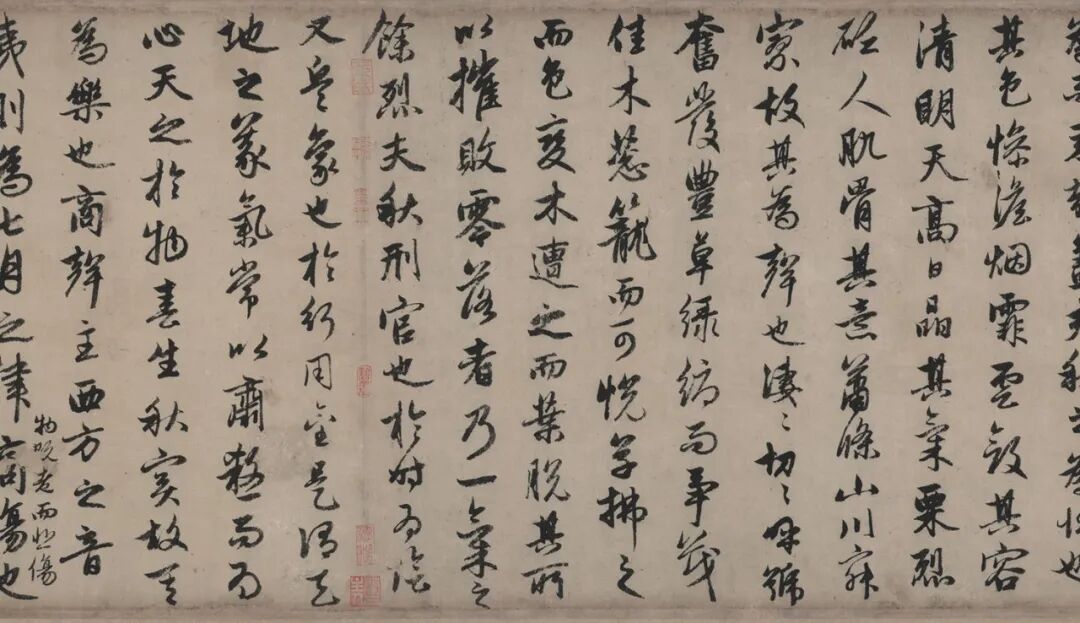 盖夫秋之為状也
其色惨澹烟霏雲斂其容
清明天高日晶其氣栗烈
砭人肌骨其意蕭條山川寂
寥故其為聲也淒〻切〻呼號
奮發豐草緑縟而争茂
佳木葱籠而可悦草拂之
而色變木遭之而葉脱其所
以摧敗零落者乃一氣之
餘烈夫秋刑官也於时為陰
又兵象也於行用金是謂天
地之義氣常以肅殺而為
心天之於物春生秋實故其
為樂也商聲主西方之音
夷則為七月之律商傷也
物既老而悲傷